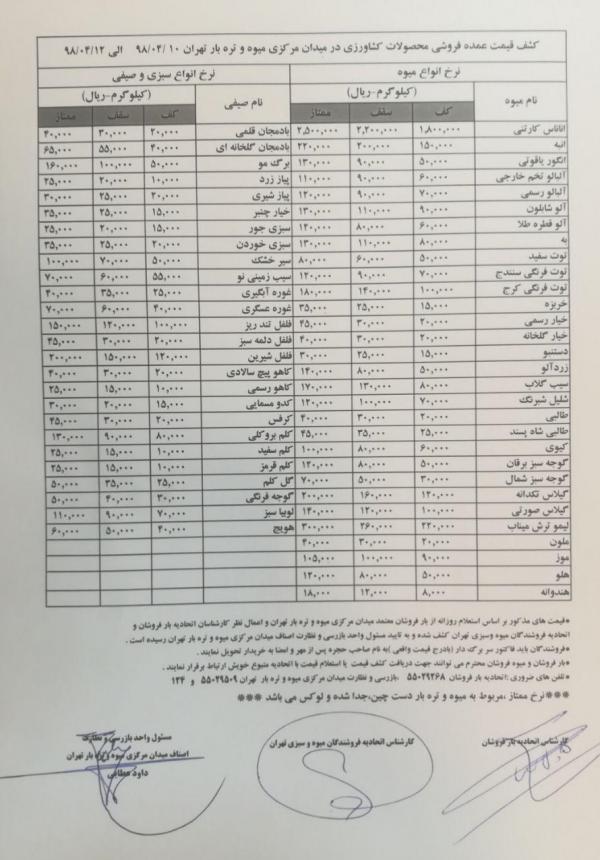 کشف قیمت عمده فروشی محصولات کشاورزی در میدان مرکزی میوه و تره بار تهران ۹۸/۰۴/۱۰ الی ۹۸/۰۴/۱۲
نرخ انواع میوه نرخ انواع سبزی و صیفی
نام میوه (کیلوگرم-ریال) نام صیفی (کیلوگرم-ریال)
کف سقف ممتاز کف سقف ممتاز
آناناس کارتنی ۱,۸۰۰,۰۰۰ ۲,۲۰۰,۰۰۰ ۲,۵۰۰,۰۰۰ بادمجان قلمی ۲۰,۰۰۰ ۳۰,۰۰۰ ۴۰,۰۰۰
انبه ۱۵۰,۰۰۰ ۲۰۰,۰۰۰ ۲۲۰,۰۰۰ بادمجان گلخانه ای ۴۰,۰۰۰ ۵۵,۰۰۰ ۶۵,۰۰۰
انگور یاقوتی ۵۰,۰۰۰ ۹۰,۰۰۰ ۱۳۰,۰۰۰ برگ مو ۵۰,۰۰۰ ۱۰۰,۰۰۰ ۱۶۰,۰۰۰
آلبالو تخم خارجی ۶۰,۰۰۰ ۹۰,۰۰۰ ۱۱۰,۰۰۰ پیاز زرد ۱۰,۰۰۰ ۲۰,۰۰۰ ۲۵,۰۰۰
آلبالو رسمی ۷۰,۰۰۰ ۹۰,۰۰۰ ۱۲۰,۰۰۰ پیاز شیری ۲۰,۰۰۰ ۲۵,۰۰۰ ۳۰,۰۰۰
آلو شابلون ۹۰,۰۰۰ ۱۱۰,۰۰۰ ۱۳۰,۰۰۰ خیار چنبر ۱۵,۰۰۰ ۲۵,۰۰۰ ۳۵,۰۰۰
آلو قطره طلا ۶۰,۰۰۰ ۸۰,۰۰۰ ۱۲۰,۰۰۰ سبزی جور ۱۵,۰۰۰ ۲۰,۰۰۰ ۲۵,۰۰۰
به ۸۰,۰۰۰ ۱۱۰,۰۰۰ ۱۳۰,۰۰۰ سبزی خوردن ۲۰,۰۰۰ ۲۵,۰۰۰ ۳۵,۰۰۰
توت سفید ۵۰,۰۰۰ ۶۰,۰۰۰ ۸۰,۰۰۰ سیر خشک ۵۰,۰۰۰ ۷۰,۰۰۰ ۱۰۰,۰۰۰
توت فرنگی سنندج ۷۰,۰۰۰ ۹۰,۰۰۰ ۱۲۰,۰۰۰ سیب زمینی نو ۵۵,۰۰۰ ۶۰,۰۰۰ ۷۰,۰۰۰
توت فرنگی کرج ۱۰۰,۰۰۰ ۱۴۰,۰۰۰ ۱۸۰,۰۰۰ غوره آبگیری ۲۵,۰۰۰ ۳۵,۰۰۰ ۴۰,۰۰۰
خربزه ۱۵,۰۰۰ ۲۵,۰۰۰ ۳۵,۰۰۰ غوره عسگری ۴۰,۰۰۰ ۶۰,۰۰۰ ۷۰,۰۰۰
خیار رسمی ۲۰,۰۰۰ ۳۰,۰۰۰ ۴۵,۰۰۰ فلفل تند ریز ۱۰۰,۰۰۰ ۱۲۰,۰۰۰ ۱۵۰,۰۰۰
خیار گلخانه ۲۰,۰۰۰ ۳۰,۰۰۰ ۴۰,۰۰۰ فلفل دلمه سبز ۲۰,۰۰۰ ۳۰,۰۰۰ ۴۵,۰۰۰
دستنبو ۱۵,۰۰۰ ۲۵,۰۰۰ ۳۰,۰۰۰ فلفل شیرین ۱۲۰,۰۰۰ ۱۵۰,۰۰۰ ۲۰۰,۰۰۰
زردآلو ۵۰,۰۰۰ ۸۰,۰۰۰ ۱۴۰,۰۰۰ کاهو پیچ سالادی ۲۰,۰۰۰ ۳۰,۰۰۰ ۴۰,۰۰۰
سیب گلاب ۸۰,۰۰۰ ۱۳۰,۰۰۰ ۱۷۰,۰۰۰ کاهو رسمی ۱۰,۰۰۰ ۱۵,۰۰۰ ۲۵,۰۰۰
شلیل شبرنگ ۷۰,۰۰۰ ۱۰۰,۰۰۰ ۱۲۰,۰۰۰ کدو مسمایی ۱۵,۰۰۰ ۲۰,۰۰۰ ۳۰,۰۰۰
طالبی ۲۰,۰۰۰ ۳۰,۰۰۰ ۴۰,۰۰۰ کرفس ۲۰,۰۰۰ ۳۰,۰۰۰ ۴۵,۰۰۰
طالبی شاه پسند ۲۵,۰۰۰ ۳۵,۰۰۰ ۴۵,۰۰۰ کلم بروکلی ۸۰,۰۰۰ ۹۰,۰۰۰ ۱۳۰,۰۰۰
کیوی ۶۰,۰۰۰ ۸۰,۰۰۰ ۱۰۰,۰۰۰ کلم سفید ۱۰,۰۰۰ ۱۵,۰۰۰ ۲۵,۰۰۰
گوجه سبز برقان ۵۰,۰۰۰ ۸۰,۰۰۰ ۱۲۰,۰۰۰ کلم قرمز ۱۰,۰۰۰ ۱۵,۰۰۰ ۲۵,۰۰۰
گوجه سبز شمال ۳۰,۰۰۰ ۵۰,۰۰۰ ۷۰,۰۰۰ گل کلم ۲۵,۰۰۰ ۳۵,۰۰۰ ۵۰,۰۰۰
گیلاس تکدانه ۱۲۰,۰۰۰ ۱۶۰,۰۰۰ ۲۰۰,۰۰۰ گوجه فرنگی ۳۰,۰۰۰ ۴۰,۰۰۰ ۵۰,۰۰۰
گیلاس صورتی ۱۰۰,۰۰۰ ۱۲۰,۰۰۰ ۱۴۰,۰۰۰ لوبیا سبز ۷۰,۰۰۰ ۹۰,۰۰۰ ۱۱۰,۰۰۰
لیمو ترش میناب ۲۲۰,۰۰۰ ۲۶۰,۰۰۰ ۳۰۰,۰۰۰ هویج ۴۰,۰۰۰ ۵۰,۰۰۰ ۶۰,۰۰۰
ملون ۲۰,۰۰۰ ۳۰,۰۰۰ ۴۰,۰۰۰
موز ۹۰,۰۰۰ ۱۰۰,۰۰۰ ۱۰۵,۰۰۰
هلو ۵۰,۰۰۰ ۸۰,۰۰۰ ۱۲۰,۰۰۰
هندوانه ۸,۰۰۰ ۱۲,۰۰۰ ۱۸,۰۰۰
*قیمت های مذکور بر اساس استعلام روزانه از بار فروشان معتمد میدان مرکزی میوه و تره بار تهران و اعمال نظر کارشناسان اتحادیه بار فروشان و
اتحادیه فروشندگان میوه وسبزی تهران کشف شده و به تایید مسئول واحد بازرسی و نظارت اصناف میدان مرکزی میوه و تره بار تهران رسیده است .
*فروشندگان باید فاکتور سر برگ دار (بادرج قیمت واقعی )به نام صاحب حجره پس از مهر و امضا به خریدار تحویل نمایند .
*بار فروشان و میوه فروشان محترم می توانند جهت دریافت کشف قیمت یا استعلام قیمت با اتحادیه متبوع خویش ارتباط برقرار نمایند .
*تلفن های ضروری :اتحادیه بار فروشان ۵۵۰۲۹۲۶۸ ،بازرسی و نظارت میدان مرکزی میوه و تره بار تهران ۵۵۰۲۹۵۰۹ و ۱۲۴
***نرخ ممتاز ،مربوط به میوه و تره بار دست چین،جدا شده و لوکس می باشد ***
کارشناس اتحادیه بار فروشان کارشناس اتحادیه فروشندگان میوه و سبزی تهران مسئول واحد بازرسی و نظارت
اصناف میدان مرکزی میوه و تره بار تهران
داود عطایی